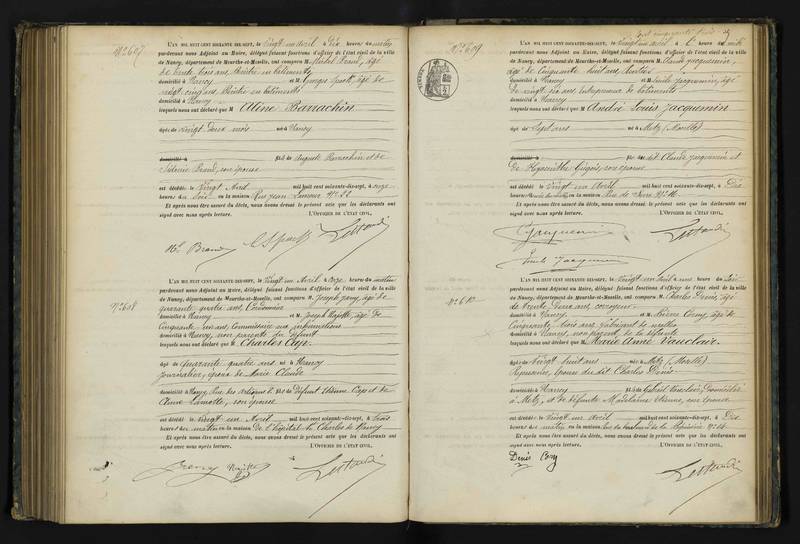 N° 607
L'AN MIL HUIT CENT SOIXANTE-DIX-SEPT, le Vingt un Avril à Dix heures du matin
pardevant nous Adjoint au Maire, délégué faisant fonctions d'officier de l'état civil de la ville
de Nancy, département de Meurthe-et-Moselle, ont comparu M. Brand, âgé
de trente trois ans, Peintre en bâtiments
domicilié à Nancy et M. Georges âgé de
vingt cinq ans, Peintre en bâtiments
domicilié à Nancy
lesquels nous ont déclaré que M Aline Barrachin
âgée de Vingt deux mois née à Nancy
domicilié à fille de Auguste Barrachin et de
Brand, son épouse
est décédée le Vingt Avril mil huit cent soixante-dix-sept, à onze
heures du Soir en la maison Rue Jean Lamour N° 22
Et après nous être assuré du décès, nous avons dressé le présent acte que les déclarants ont
signé avec nous après lecture. L'OFFICIER DE L'ÉTAT CIVIL,
N° 608
L'AN MIL HUIT CENT SOIXANTE-DIX-SEPT, le Vingt un Avril à onze heures du matin
pardevant nous Adjoint au Maire, délégué faisant fonctions d'officier de l'état civil de la ville
de Nancy, département de Meurthe-et-Moselle, ont comparu M. Joseph âgé de
quarante quatre ans,
domicilié à Nancy et M. Joseph âgé de
Cinquante un ans, Commissaire aux inhumations
domicilié à Nancy, non parents du défunt
lesquels nous ont déclaré que M Charles
âgé de Quarante quatre ans né à Nancy
Journalier, époux de Marie Claude
domicilié à Nancy, Rue des fils de défunt Etienne et de
Anne Lamotte, son épouse
est décédé le Vingt un Avril mil huit cent soixante-dix-sept, à Trois
heures du matin en la maison De l'hôpital St Charles de Nancy
Et après nous être assuré du décès, nous avons dressé le présent acte que les déclarants ont
signé avec nous après lecture. L'OFFICIER DE L'ÉTAT CIVIL,
N° 609
L'AN MIL HUIT CENT SOIXANTE-DIX-SEPT, le Vingt un Avril à heures du
pardevant nous Adjoint au Maire, délégué faisant fonctions d'officier de l'état civil de la ville
de Nancy, département de Meurthe-et-Moselle, ont comparu M. Claude Jacquemin,
âgé de Cinquante huit ans,
domicilié à Nancy et M. Emile Jacquemin, âgé
de vingt six ans Entrepreneur de bâtiments
domicilié à Nancy
lesquels nous ont déclaré que M André Louis Jacquemin
âgé de Sept ans né à Metz (Moselle)
domicilié à fils de dit Claude Jacquemin et
de son épouse
est décédé le Vingt un Avril mil huit cent soixante-dix-sept, à Dix
heures en la maison Rue de N° 16
Et après nous être assuré du décès, nous avons dressé le présent acte que les déclarants ont
signé avec nous après lecture. L'OFFICIER DE L'ÉTAT CIVIL,
Jacquemin
Emile Jacquemin
N° 610
L'AN MIL HUIT CENT SOIXANTE-DIX-SEPT, le Vingt un Avril à une heure du Soir
pardevant nous Adjoint au Maire, délégué faisant fonctions d'officier de l'état civil de la ville
de Nancy, département de Meurthe-et-Moselle, ont comparu M. Charles Denis, âgé
de trente Deux ans,
domicilié à Nancy et M. Pierre âgé de
Cinquante trois ans Fabricant de
domicilié à Nancy, non parent de la défunte
lesquels nous ont déclaré que M Marie Anne Vauclair
âgée de Vingt huit ans née à Metz (Moselle)
Repasseuse, épouse du dit Charles Denis
domiciliée à Nancy fille de Gabriel Vauclair, domicilié
à Metz, et de défunte Madeleine son épouse
est décédée le Vingt un Avril mil huit cent soixante-dix-sept, à Dix
heures du matin en la maison de la Pépinière N° 24
Et après nous être assuré du décès, nous avons dressé le présent acte que les déclarants ont
signé avec nous après lecture. L'OFFICIER DE L'ÉTAT CIVIL,
Denis